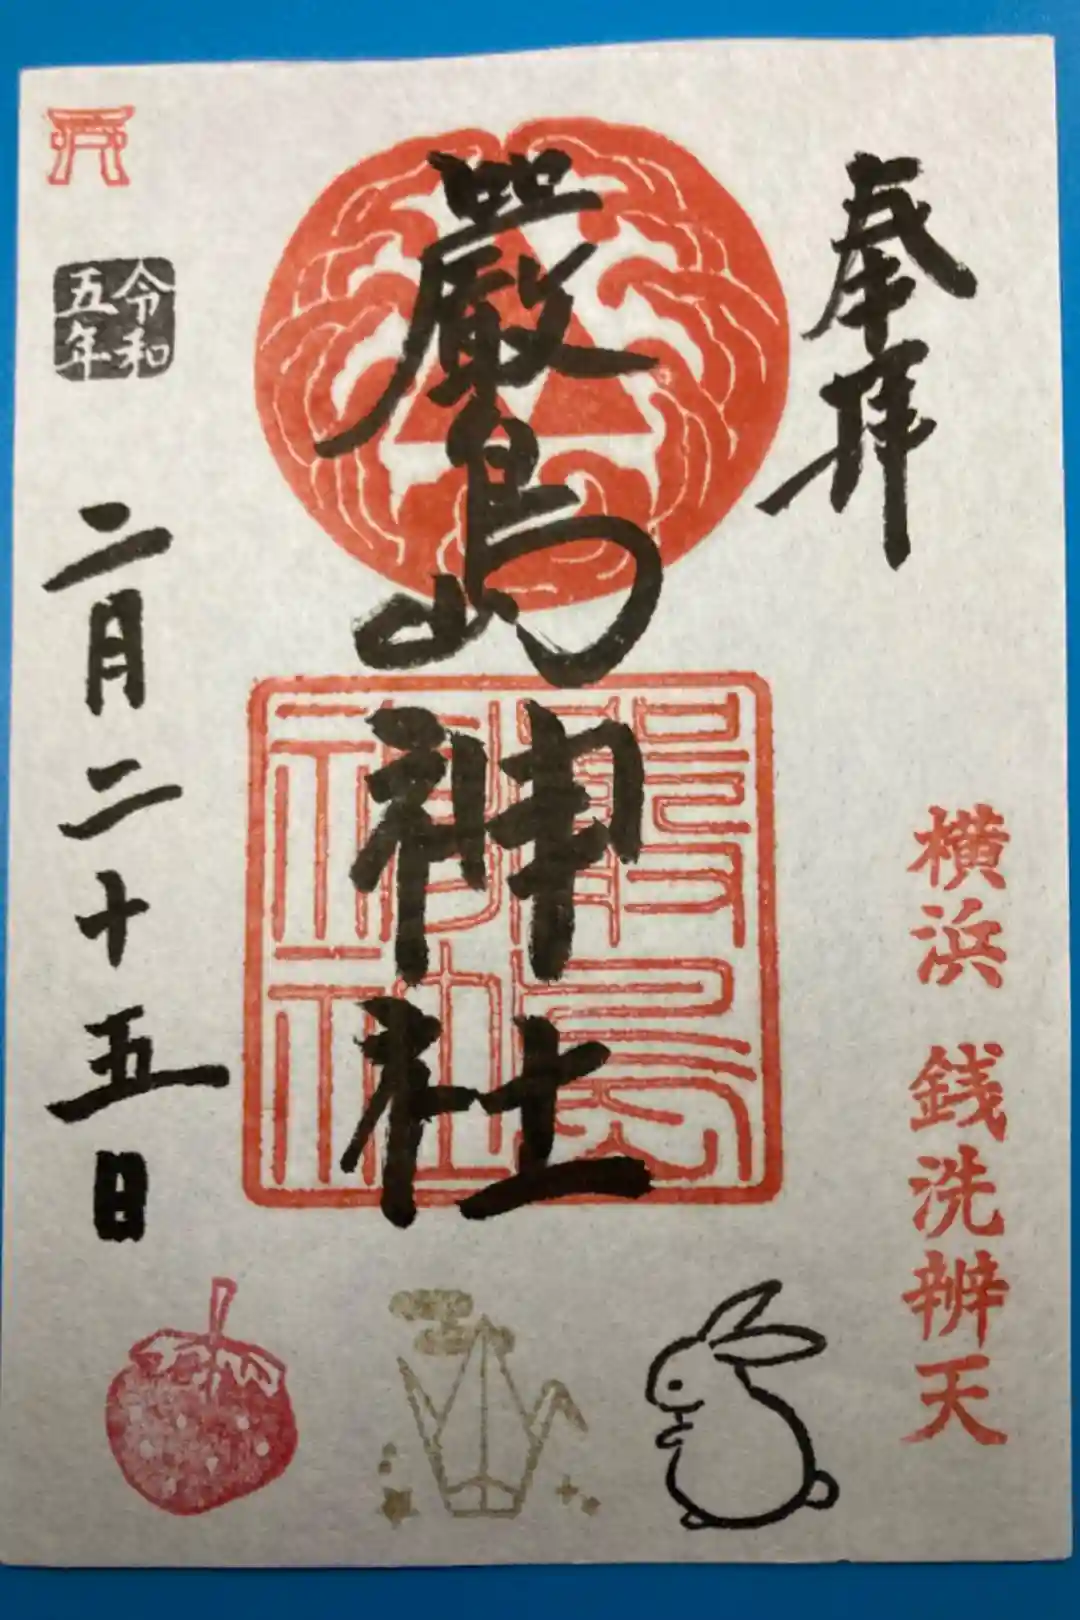 奉拝
横浜 銭洗辨天
嚴島神社
嚴島
神社
令和
五年
二月二十五日